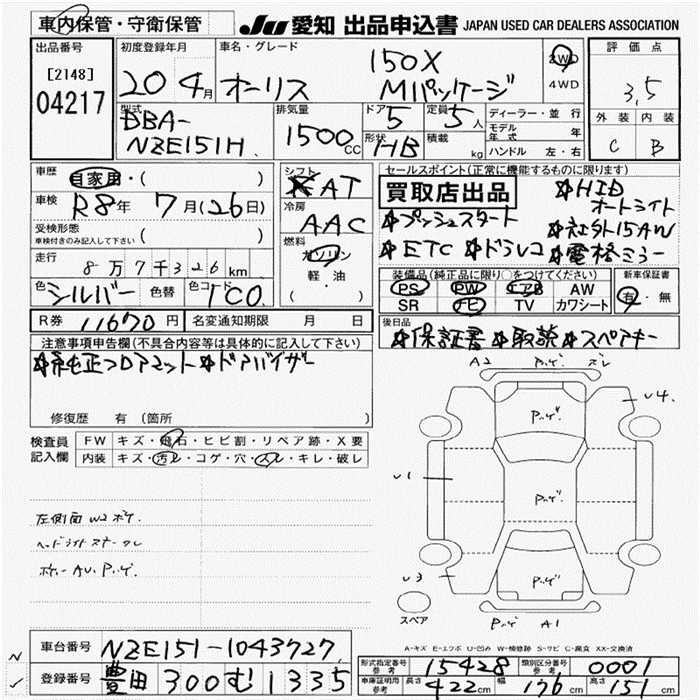 車内保管・守衛保管 JU 愛知 出品申込書 JAPAN USED CAR DEALERS ASSOCIATION
出品番号 初度登録年月 車名・グレード 評価点
[2148] 04217 20 4月 オーリス 150X Mパッケージ 2WD 4WD 3,5
型式 排気量 ドア 定員 ディーラー・並行 外装 内装
DBA-NZE151H 1500CC 5 5人 モデル年式 年 C B
形状 HB 積載 kg ハンドル 左・右
車歴 自家用・( ) シフト AT セールスポイント(正常に機能するものに限ります)
車検 R8年 7月(26日) 冷房 AAC 買取店出品 ☆HID オートライト
受検形態 車検付きのみ記入して下さい ( ) ☆プッシュスタート ☆社外15AW
燃料 ガソリン 軽・油 ( ) ☆ETC ☆ドラレコ ☆電格ミラー
走行 8万7千326km 装備品(純正品に限り○をつけてください) 新車保証書
色 シルバー 色替 色コード 1C0 PS PW エアB AW 有・無
SR ナビ TV カワシート
R券 11670円 名変通知期限 月 日 後日品
☆保証書 ☆取説 ☆スペアキー
注意事項申告欄(不具合内容等は具体的に記入して下さい)
純正フロアマット ☆ドアバイザー
修復歴 有 (箇所
検査員記入欄 FW キズ・飛石・ヒビ割・リペア跡・X要
内装 キズ・汚レ・コゲ・穴・スレ・キレ・破レ
A2 ズレ
U4
U1
U3
A1
左側面 W2
スペア
A-キズ E-エクボ U-凹み W-補修跡 S-サビ C-腐食 XX-交換済
車台番号 NZE151-1043727
登録番号 豊田 300 む 1335
型式指定番号 参考 15428 類別区分番号 参考 0001
車庫証明用 参考 長さ 422cm 幅 176cm 高さ 151cm